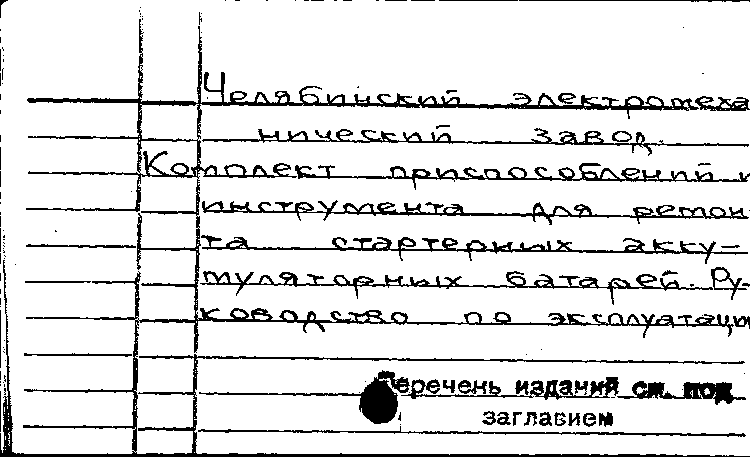 Челябинский электромеха
нический завод.
Комплект приспособлений и
инструмента для ремон
та стартерных акку-
муляторных батарей. Ру-
ководство по эксплуатации
Перечень изданий см. под
заглавием